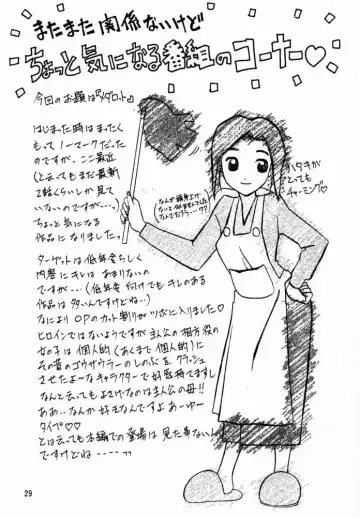 またまた関係ないけど
ちょっと気になる番組のコーナー♡
今回のお題は『メダロット』
はじまった時はまったく
もってノーマークだった
のですが、ここ最近
(と云ってもまだ最新
2話くらいしか見て
いないのですが…っ)
ちょっと気になる
作品になりましたっ
ターゲットは低年令らしく
内容にキレはあまりないの
ですが…(低年令向けでもキレのある
作品は多いんですけどね…)
なによりOPのカット割りがツボに入りました♡
ヒロインではないようですが主人公の相方役の
女の子は個人的(あくまで個人的)に
その昔のゴウザウラーのしのぶをクラッシュ
させたよ〜なキャラクターで好感持てますし
なんと云ってもよさげなのは主人公の母!!
ああ…なんか好きなんですよあーゆー
タイプ♡♡
とは云っても本編での登場は見た事ないん
ですけどね……っ
なんか頭身上げ
ないと似ませんでした!
なんでだろー…??
ハタキが
とっても
チャーミング♡
29